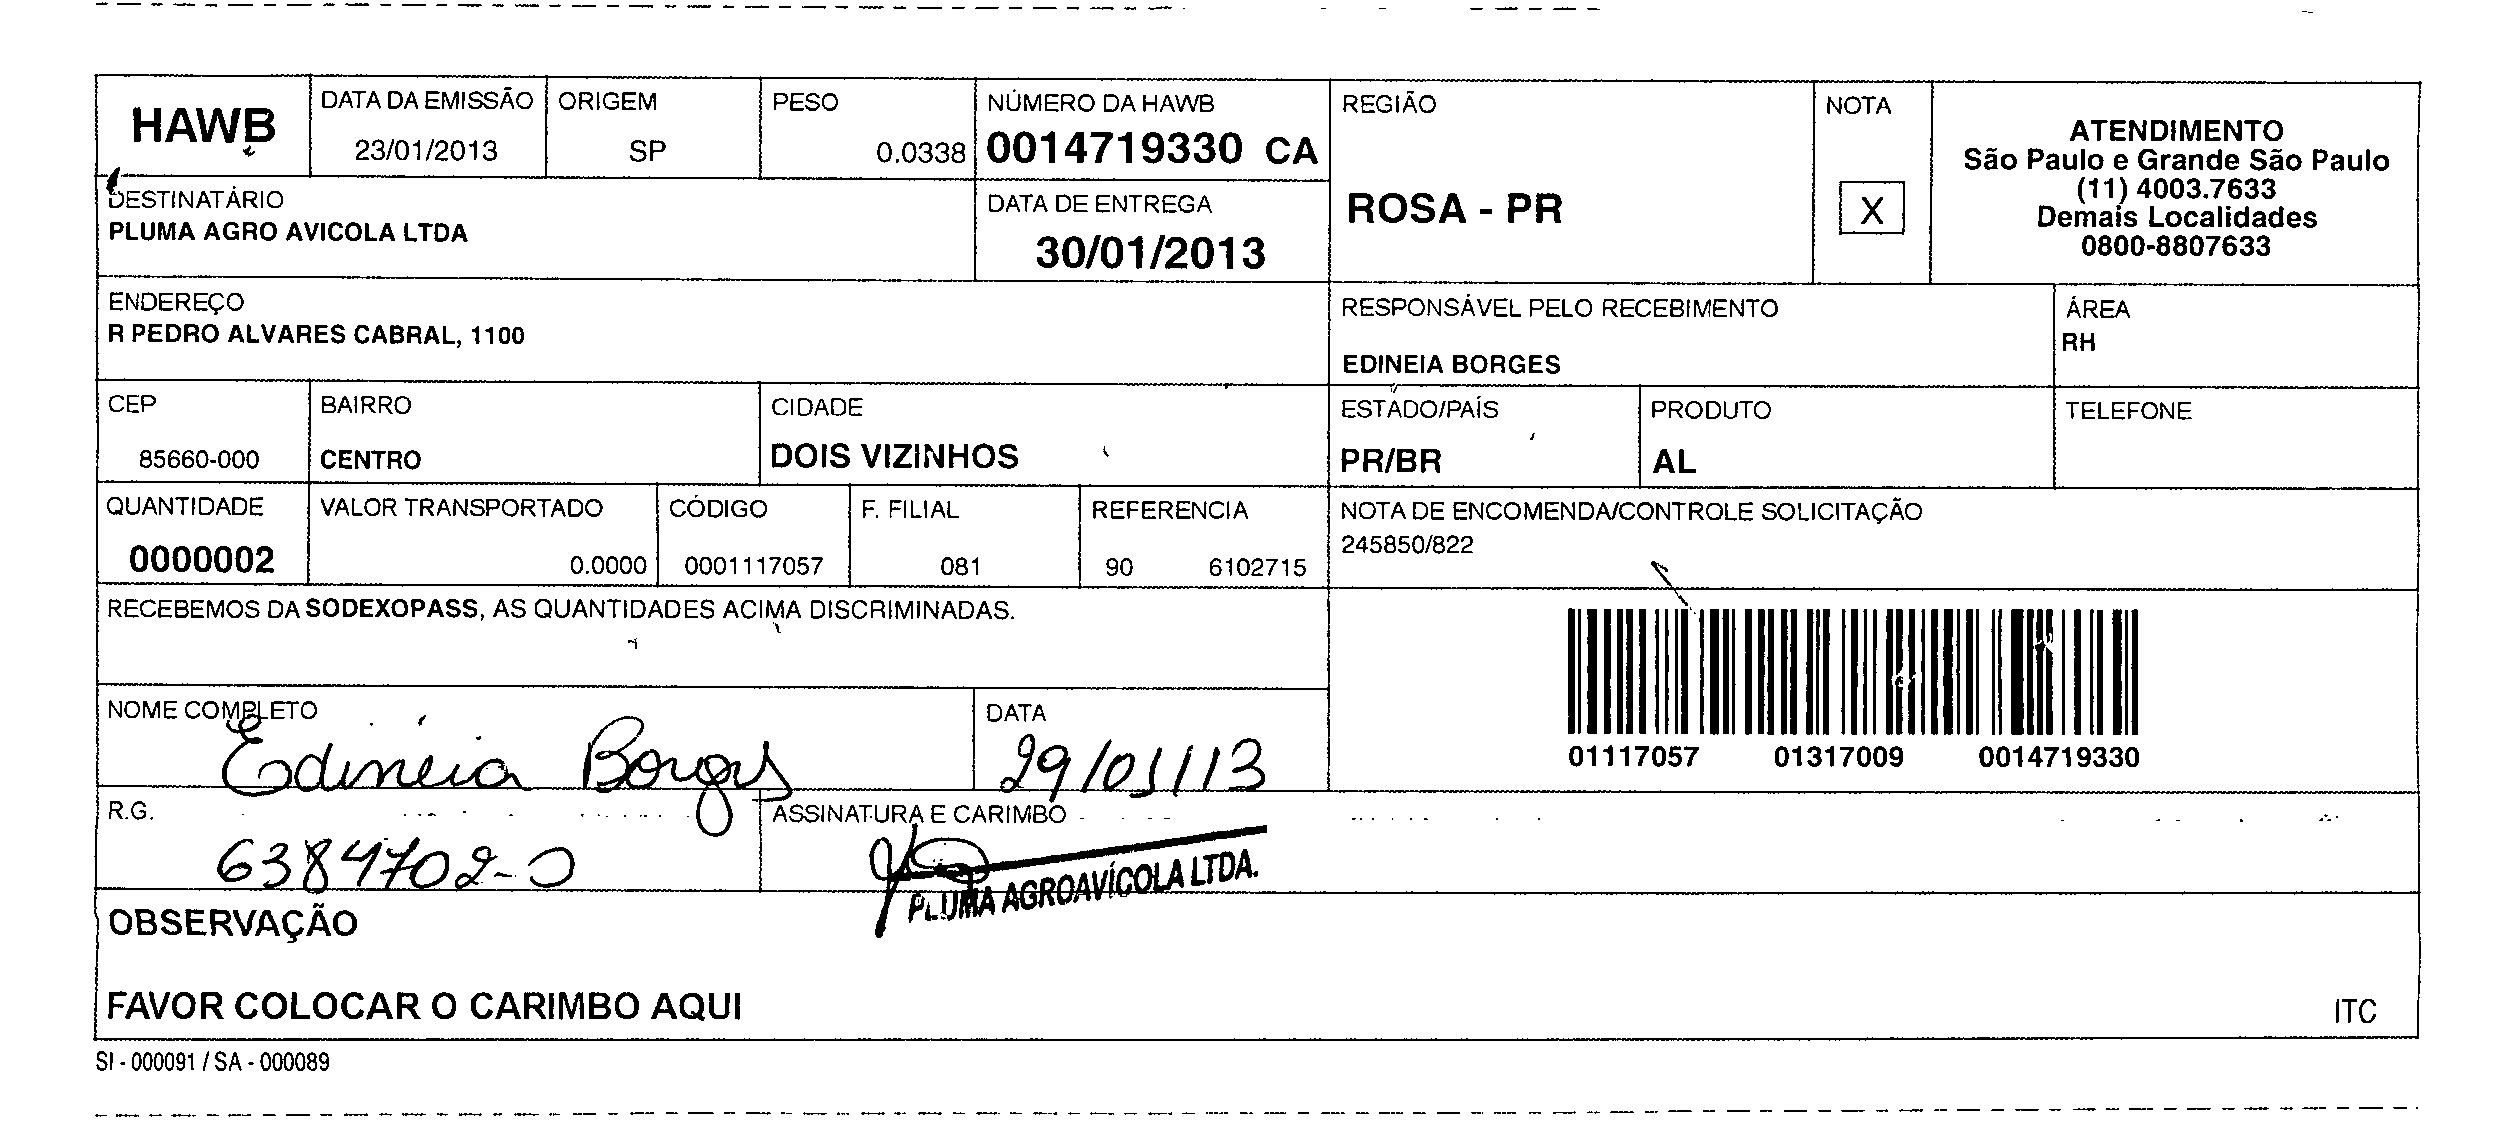 HAWB
DATA DA EMISSÃO
23/01/2013
ORIGEM
SP
PESO
0.0338
NÚMERO DA HAWB
0014719330 CA
REGIÃO
ROSA - PR
NOTA
X
ATENDIMENTO
São Paulo e Grande São Paulo
(11) 4003.7633
Demais Localidades
0800-8807633
DESTINATÁRIO
PLUMA AGRO AVICOLA LTDA
DATA DE ENTREGA
30/01/2013
ENDEREÇO
R PEDRO ALVARES CABRAL, 1100
RESPONSÁVEL PELO RECEBIMENTO
EDINEIA BORGES
ÁREA
RH
CEP
85660-000
BAIRRO
CENTRO
CIDADE
DOIS VIZINHOS
ESTADO/PAÍS
PR/BR
PRODUTO
AL
TELEFONE
QUANTIDADE
0000002
VALOR TRANSPORTADO
0.0000
CÓDIGO
0001117057
F. FILIAL
081
REFERENCIA
90 6102715
NOTA DE ENCOMENDA/CONTROLE SOLICITAÇÃO
245850/822
RECEBEMOS DA SODEXOPASS, AS QUANTIDADES ACIMA DISCRIMINADAS.
01117057 01317009 0014719330
NOME COMPLETO
Edineia Borges
DATA
29/01/13
R.G.
6384702-0
ASSINATURA E CARIMBO
PLUMA AGROAVÍCOLA LTDA.
OBSERVAÇÃO
FAVOR COLOCAR O CARIMBO AQUI
ITC
SI - 000091 / SA - 000089